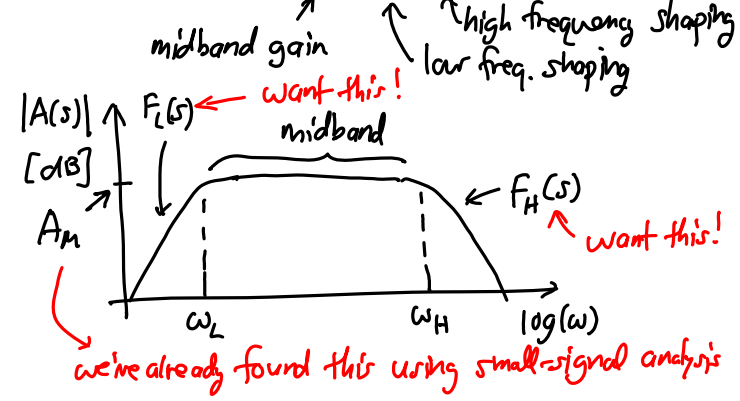 high frequency shaping
midband gain
low freq. shaping
want this!
|A(s)|
F_L(s)
midband
[dB]
F_H(s)
A_M
want this!
ω_L
ω_H
log(ω)
we've already found this using small-signal analysis